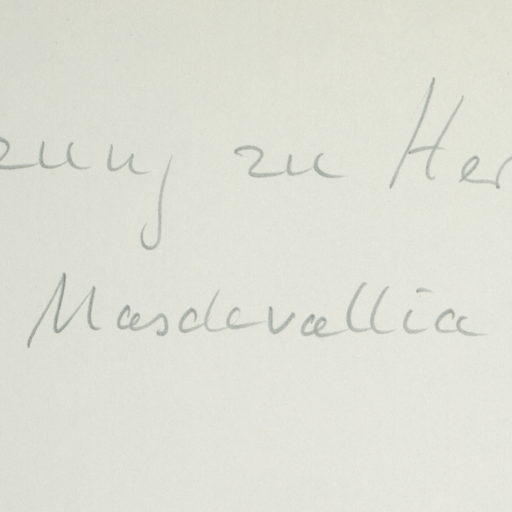 zung zu Her
Masdevallia